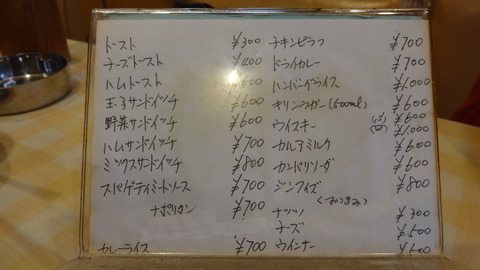 トースト ¥300
チーズトースト ¥400
ハムトースト ¥500
玉子サンドイッチ ¥600
野菜サンドイッチ ¥600
ハムサンドイッチ ¥700
ミックスサンドイッチ ¥800
スパゲティミートソース ¥700
ナポリタン ¥700
カレーライス ¥700
チキンピラフ ¥700
ドライカレー ¥700
ハンバーグライス ¥1000
キリンラガー(500ml) ¥600
ウイスキー (S) ¥600
(W) ¥1000
カルアミルク ¥600
カンパリソーダ ¥600
ジンフィズ ¥800
<おつまみ>
ナッツ ¥300
チーズ ¥500
ウインナー ¥500